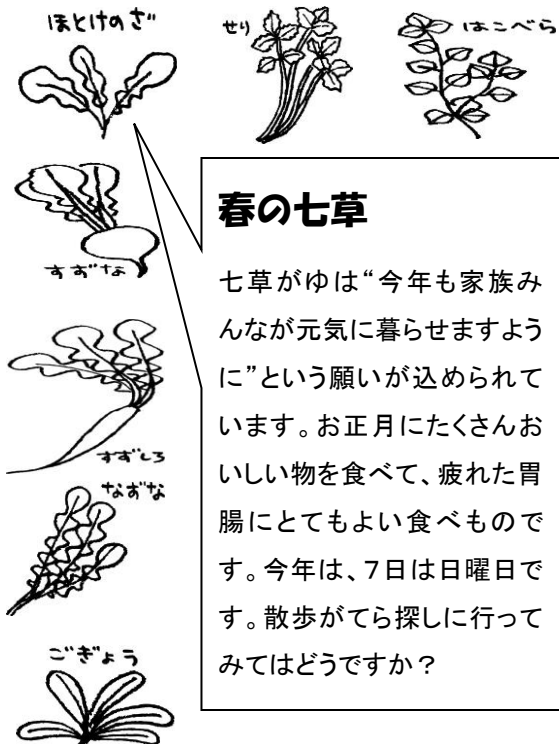 ほとけのざ
せり
はこべら
すずな
すずしろ
なずな
ごぎょう
春の七草
七草がゆは“今年も家族み
んなが元気に暮らせますよう
に”という願いが込められて
います。お正月にたくさんお
いしい物を食べて、疲れた胃
腸にとてもよい食べもので
す。今年は、7日は日曜日で
す。散歩がてら探しに行って
みてはどうですか？